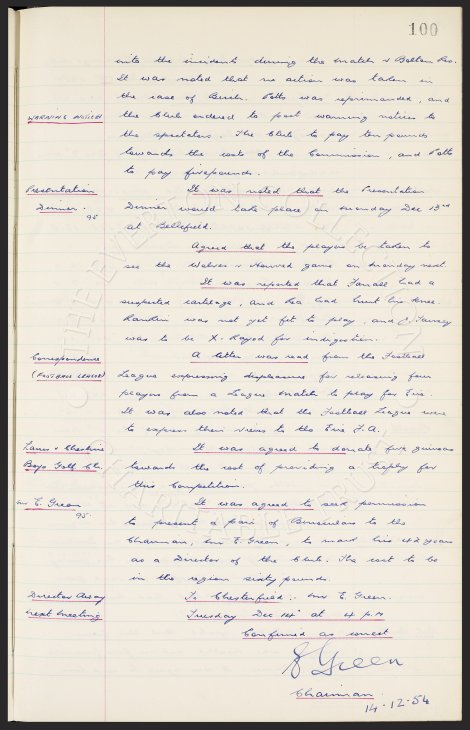 100
into the incident during the match v Bolton Res.
It was noted that no action was taken in
the case of Birch. Potts was reprimanded, and
WARNING NOTICES the Club ordered to post warning notices to
the spectators. The Club to pay ten pounds
towards the costs of the Commission, and Potts
to pay five pounds.
Presentation It was noted that the Presentation
Dinner. 95 Dinner would take place on Monday Dec 13th
at Bellefield.
Agreed that the players be taken to
see the Wolves v Honved game on Monday next.
It was reported that Farrall had a
suspected cartilage, and Rea had hurt his knee.
Rankin was not yet fit to play, and
was to be X. Rayed for indigestion.
Correspondence A letter was read from the Football
(FOOTBALL LEAGUE) League expressing displeasure for releasing four
players from a League match to play for Eire.
It was also noted that the Football League were
to express their views to the Eire F.A.
Lancs & Cheshire It was agreed to donate five guineas
Boys Golf Ch. towards the cost of providing a trophy for
this Competition.
Mr E. Green It was agreed to seek permission
95. to present a pair of Binoculars to the
Chairman, Mr E. Green, to mark his 42 years
as a Director of the Club. The cost to be
in the region sixty pounds.
Director Away To Chesterfield:- Mr E. Green.
Next Meeting Tuesday Dec 14th at 4 p.m
Confirmed as correct
E Green
Chairman.
14-12-54
THE EVERTON COLLECTION
CHARITABLE TRUST